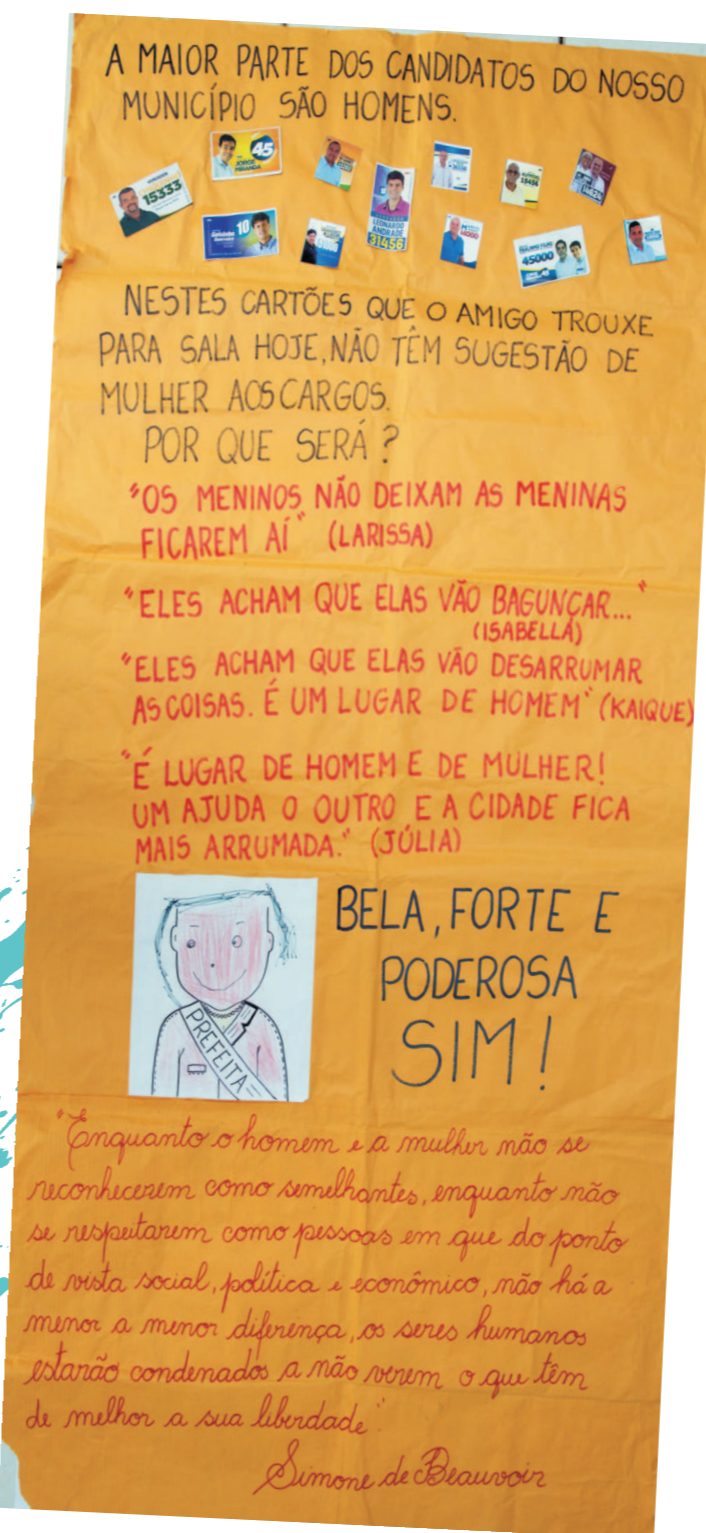 A MAIOR PARTE DOS CANDIDATOS DO NOSSO
MUNICÍPIO SÃO HOMENS.
45
JORGE
MIRANDA
15333
10
LEONARDO
ANDRADE
31456
45000
NESTES CARTÕES QUE O AMIGO TROUXE
PARA SALA HOJE, NÃO TÊM SUGESTÃO DE
MULHER AOS CARGOS.
POR QUE SERÁ?
"OS MENINOS NÃO DEIXAM AS MENINAS
FICAREM AÍ" (LARISSA)
"ELES ACHAM QUE ELAS VÃO BAGUNÇAR..."
(ISABELLA)
"ELES ACHAM QUE ELAS VÃO DESARRUMAR
AS COISAS. É UM LUGAR DE HOMEM" (KAIQUE)
"É LUGAR DE HOMEM E DE MULHER!
UM AJUDA O OUTRO E A CIDADE FICA
MAIS ARRUMADA." (JÚLIA)
PREFEITA
BELA, FORTE E
PODEROSA
SIM!
"Enquanto o homem e a mulher não se
reconhecerem como semelhantes, enquanto não
se respeitarem como pessoas em que do ponto
de vista social, política e econômico, não há a
menor a menor diferença, os seres humanos
estarão condenados a não verem o que têm
de melhor a sua liberdade".
Simone de Beauvoir